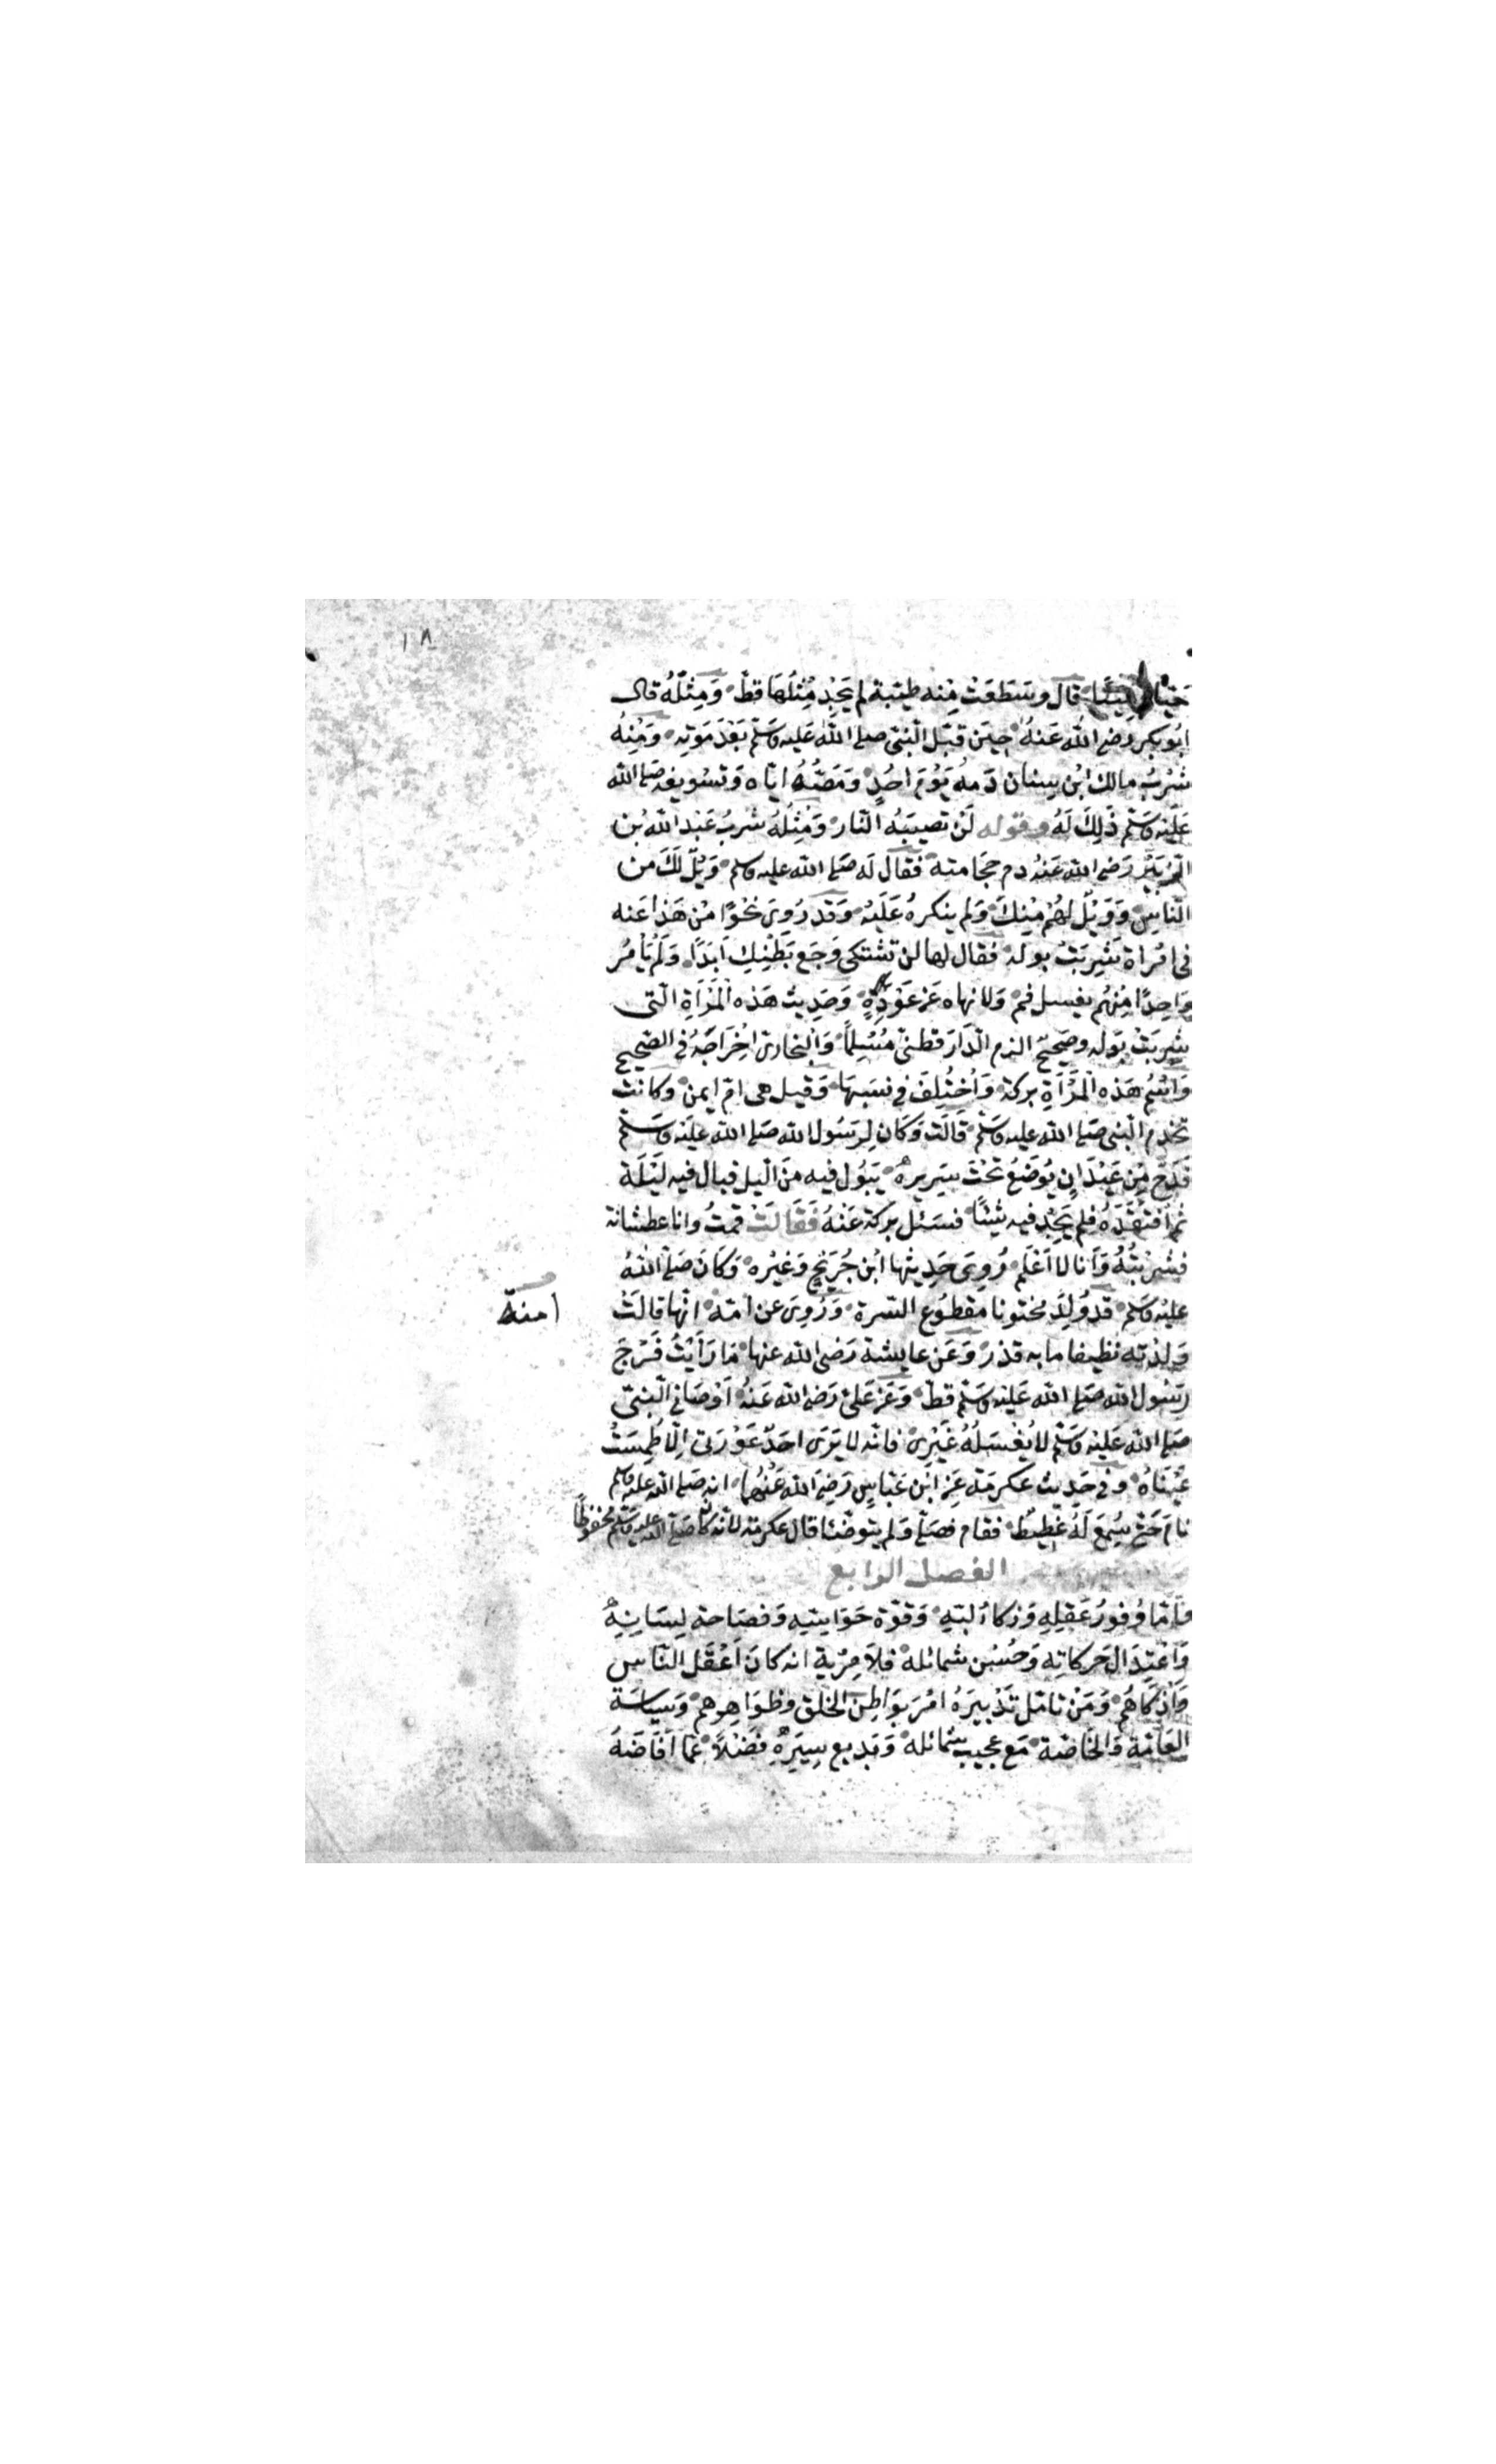 ١٨
حَيًّا وميّتًا قال وسَطعَتْ مِنْه طيّبة لم يَجِدْ مِثْلهَا قطّ وَمِثْلُه قال
ابُوبكر رضى الله عَنهُ حِيْن قبّل النّبىّ صلى الله عَليه وسَلم بَعْدَ مَوته وَمِنْهُ
شُرْبُ مالك ابْن سِنان دَمهُ يَوْم احُدٍ وَمَصُّهُ ايّاه وَتسْويغه صَلى الله
عَليْه وسلم ذٰلِكَ لَهُ وقوله لَنْ تصيبَهُ النّار وَمِثلهُ شربُ عَبْد الله بْن
الزّبَيْر رَضى الله عَنْهُ دم حجامته فقال لَه صَلى الله عليه وسلم وَيْلٌ لَكَ من
النّاسِ وَوَيْلٌ لهُمْ مِنْكَ وَلم ينكرهُ عَلَيْه وَقَدْ رُوِىَ نحْوًا مْن هَذا عَنه
فى امْراة شَرِبَتْ بوله فقال لها لن تشتكى وَجَع بَطْنِكِ اَبَدًا وَلَمْ يَأْمُر
وَاحِدًا مِنْهُم بغسل فم وَلا نهاه عَنْ عَوْدِهِ وَحَدِيث هَذه الْمَرْأَةِ الّتى
شرِبَتْ بَوْله وصَحِيْح الزم الدّارَ قطنىّ مُسْلمًا وَالْبخارىّ اخْرَاجَهُ فى الصّحيح
وَاسْمُ هَذه الْمَرْأَةِ بركة وَاخْتُلِفَ فى نسَبهَا وَقيل هى امّ ايمن وكانت
تخدم النّبىّ صَلى الله عليه وسَلم قَالَتْ وَكَان لِرَسُول الله صَلى الله عَليْه وسَلم
قَدَحٌ مِن عَيْدَانٍ يُوضَعُ تَحْتَ سَرِيره يَبُول فيه مَن الّيل فبال فيه لَيْلَة
ثُمّ افتَقَدَهُ فلم يَجِدْ فيه شيْئًا فسَئل بركة عَنْهُ فَقَالَتْ قمتُ وانا عطشانة
فشربْتُهُ وَأنا لا اَعْلَم رُوِىَ حَدِيثها ابْن جُرَيْجٍ وَغيْره وَكَانَ صَلى اللهُ
عليْه وسَلم قدْ وُلِدَ مختونا مقطُوع السّرة وَرُوِىَ عن امّه انّها قالتْ
امنة
وَلدْته نظيفا ما به قذر وَعَن عايشة رَضى الله عنها مَا رَأيْتُ فَرْجَ
رَسُول الله صَلى الله عَليْه وسَلم قطّ وَعَنْ عَلىّ رَضى الله عَنْهُ اَوْصَانى النّبىّ
صَلى الله عَليْه وسَلم لا يُغْسِلُهُ غَيْرِى فانّه لا يَرَى احَدٌ عَوْرَتى اِلّا طُمِسَتْ
عَيْنَاهُ وفى حَدِيث عكرمَة عَنْ ابْن عَبّاسٍ رَضِىَ الله عَنْهُمَا انه صَلى الله عليه وسلم
نامَ حَتى سُمِعَ لَهُ غَطِيطٌ فقام فصَلى وَلم يتوضّئا قال عكرمة لانّه كان صَلى الله عليه وسَلم محفوظًا
الفصل الرابع
فَاَمّا وُفورُ عَقلِهِ وَذكاءُ لبّهِ وَقوّة حَوَاسّه وَفصَاحة لِسَانِهِ
وَاعْتِدَال حَركاتِه وَحُسْن شمائله فلاَ مِرْية انه كانَ اَعْقَل النّاس
وَاَذْكَاهُم وَمَنْ تامّل تَدْبيرَهُ امْرَ بوَاطِن الخلق وظوَاهِرهم وَسِيَاسَة
العَامّة وَالخَاصّة مَع عجيب شمائله وَبَديع سِيَرِهِ فضْلاً عَمّا اَفَاضَهُ